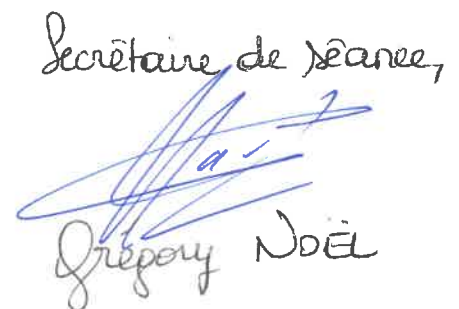 Secrêtaire de séance,
Grégory NOËL